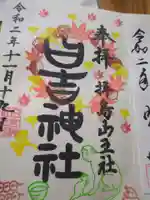 奉拝
山王社
日吉神社
令和二年十一月十九
令和二年